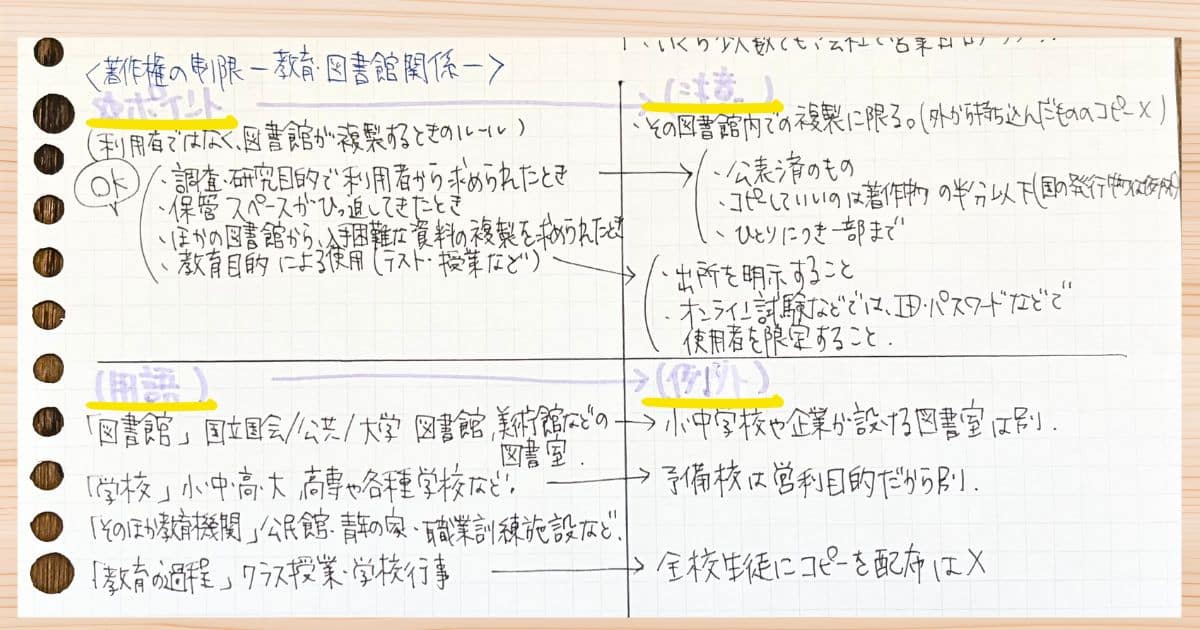 、いくら少人数でも、会社で営業目的
<著作権の制限ー教育・図書館関係ー>
(ポイント
(注意)
(利用者ではなく、図書館が複製するときのルール)
・その図書館内での複製に限る。(外から持ち込んだもののコピー×)
OK
・調査・研究目的で利用者から求められたとき
・保管スペースがひっ迫してきたとき
・ほかの図書館から、入手困難な資料の複製を求められたとき
・教育目的による使用(テスト・授業など)
・公表済のもの
・コピしていいのは著作物の半分以下(国の発行物は例外)
・ひとりにつき一部まで
・出所を明示すること
・オンライン試験などでは、ID・パスワードなどで
使用者を限定すること.
(用語)
(例外)
「図書館」国立国会/公共/大学 図書館,美術館などの
図書室.
小中学校や企業が設ける図書室は別.
「学校」小・中・高・大 高専や各種学校など.
予備校は営利目的だから別.
「そのほか教育機関」公民館・青年の家・職業訓練施設など.
「教育の過程」クラス授業・学校行事
全校生徒にコピーを配布は×